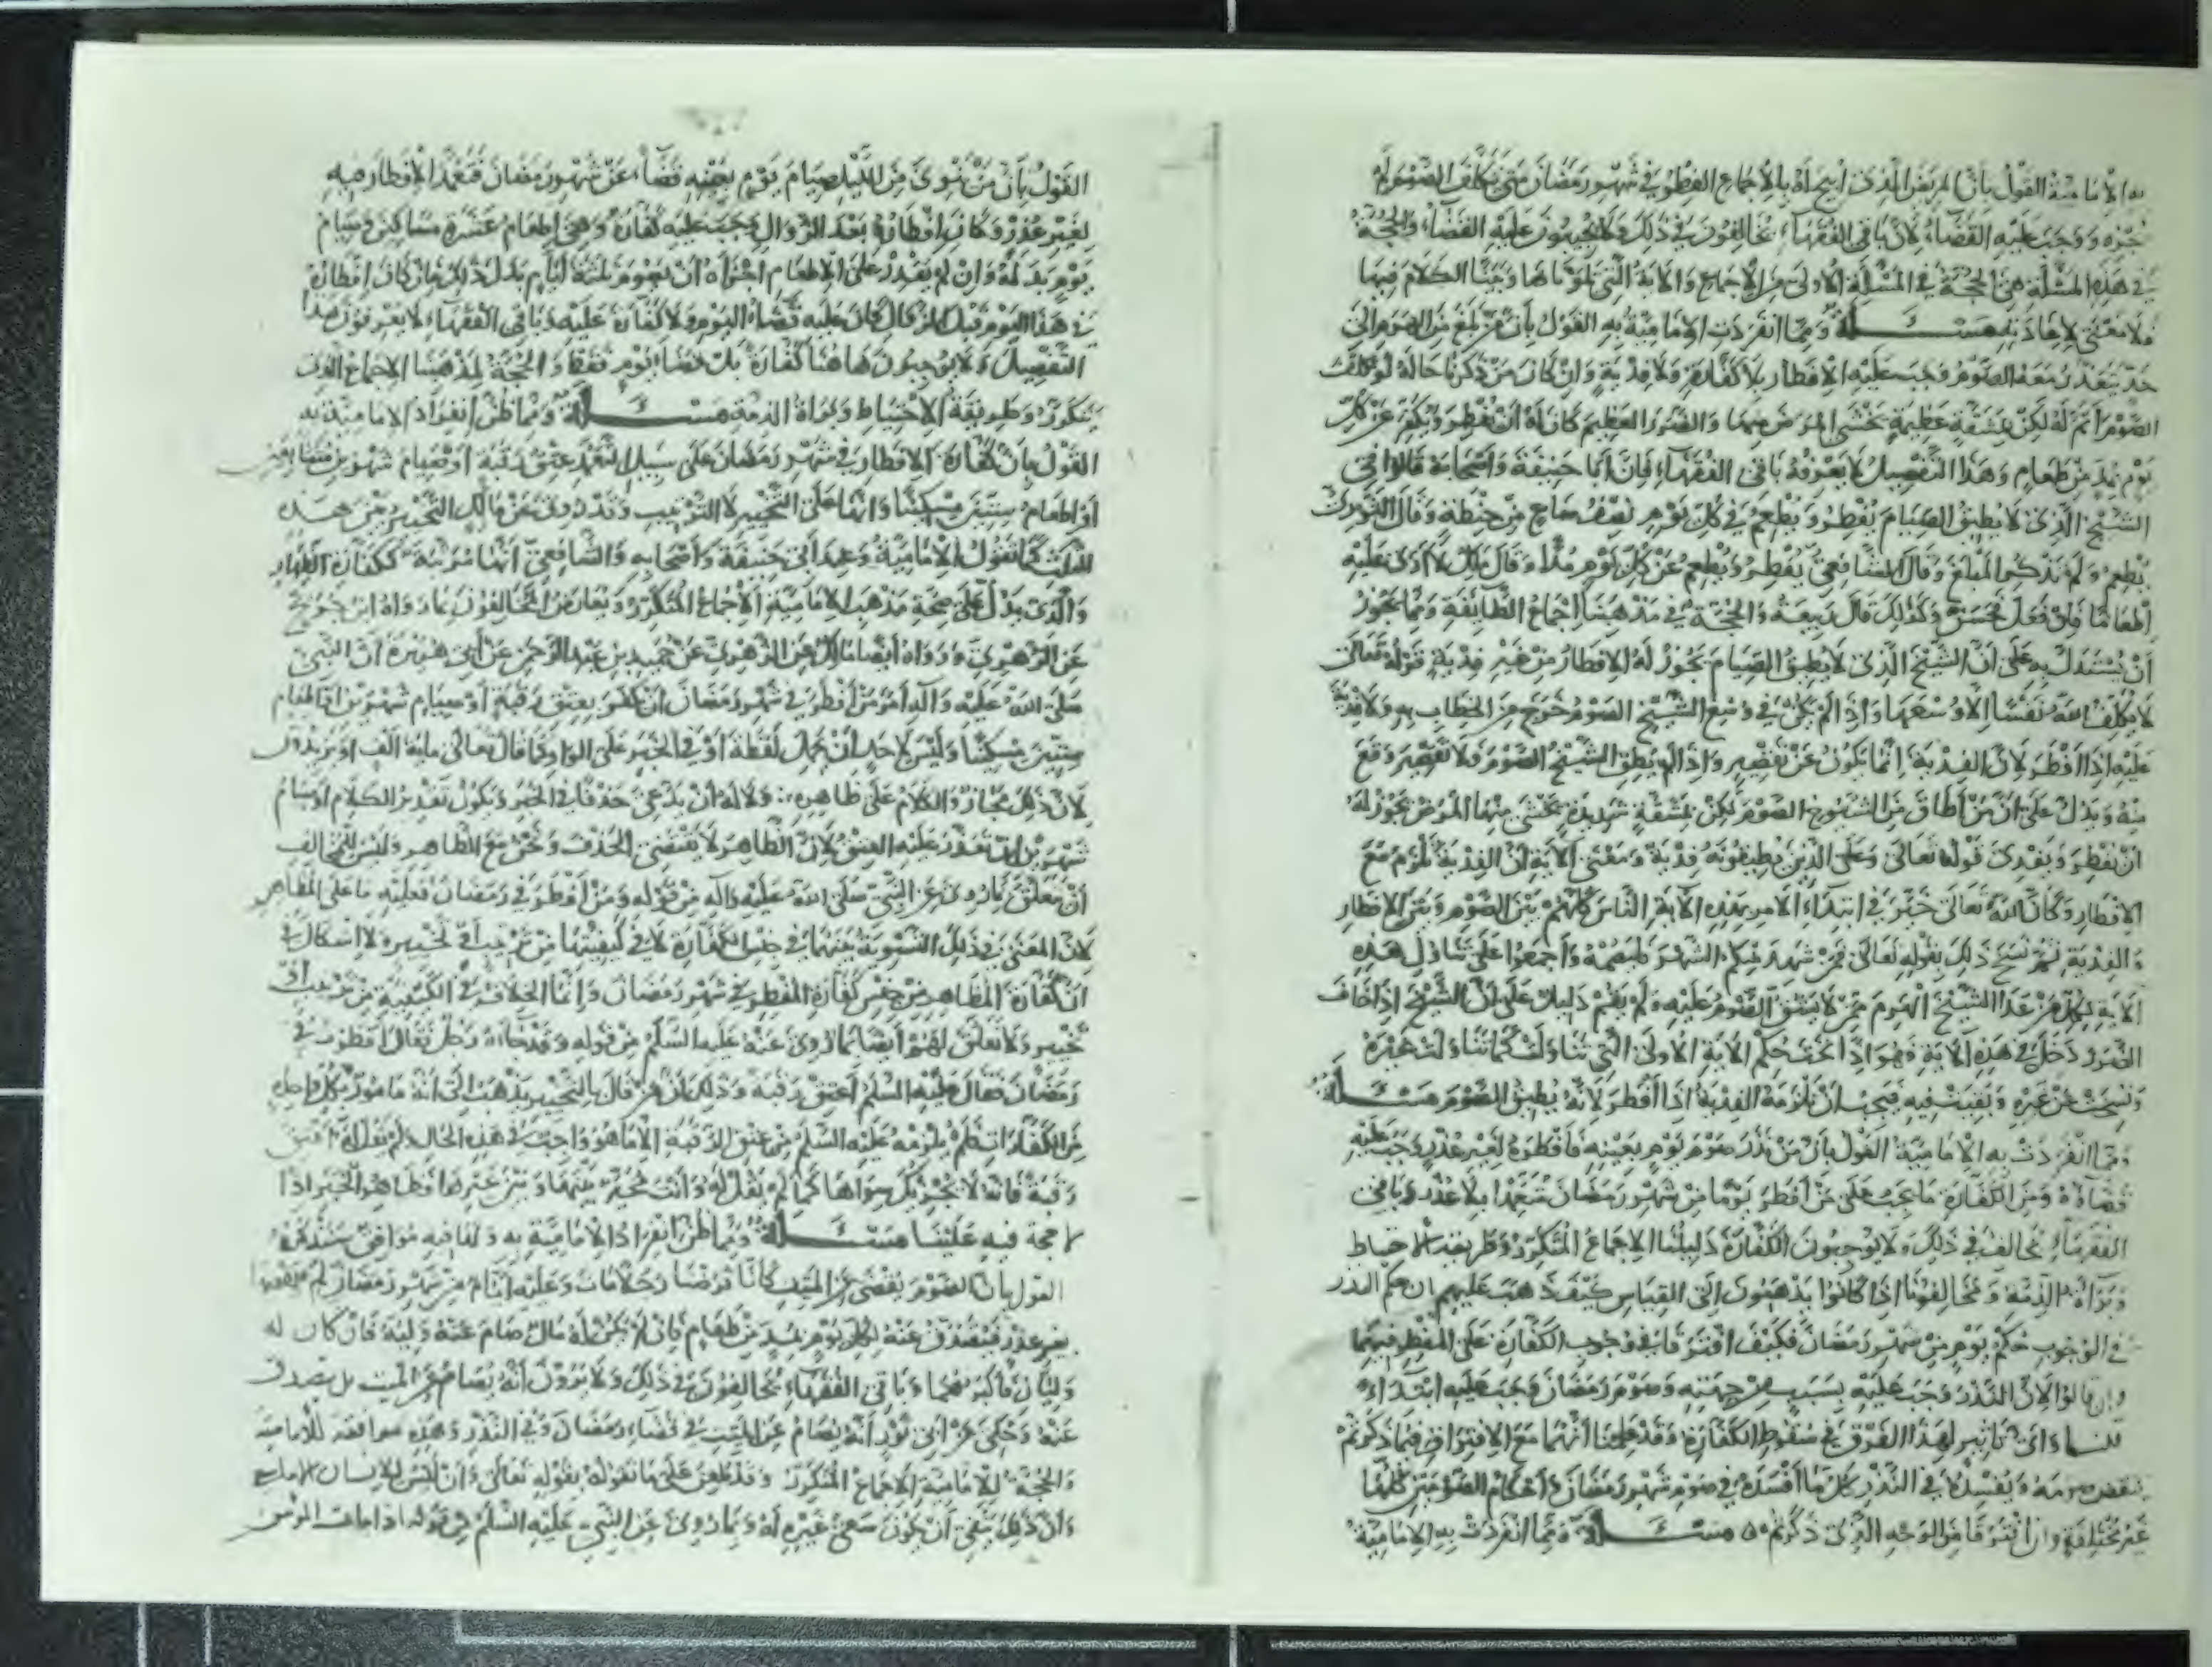 به الإمامية القول بأن المريض الذي أبيح له بالإجماع الفطر في شهر رمضان متى تكلف الصوم لم
يجزه ووجب عليه القضاء لأن باقي الفقهاء يخالفون في ذلك ولا يوجبون عليه القضاء والحجة
في هذه المسئلة هي الحجة في المسئلة الأولى من الإجماع والآية التي تلوناها وبينا الكلام فيها
فلا معنى لإعادته مسئلة ومما انفردت الإمامية به القول بأن من بلغ من الهرم إلى
حد يتعذر معه الصوم وجب عليه الإفطار بلا كفارة ولا فدية وإن كان من ذكرنا حاله لو تكلف
الصوم لتم له لكن بمشقة عظيمة يخشى المرض منها والضرر العظيم كان له أن يفطر ويكفر عن كل
يوم بمد من طعام وهذا التفصيل لا يعرفه باقي الفقهاء فإن أبا حنيفة وأصحابه قالوا في
الشيخ الذي لا يطيق الصيام يفطر ويطعم في كل يوم نصف صاع من حنطة وقال الثوري
يطعم ولم يذكر المبلغ وقال الشافعي يفطر ويطعم عن كل يوم مدا وقال مالك لا أرى عليه
إطعاما فإن فعل فحسن وكذلك قال ربيعة والحجة في مذهبنا إجماع الطائفة ومما يجوز
أن يستدل به على أن الشيخ الذي لا يطيق الصيام يجوز له الإفطار من غير فدية قوله تعالى
لا يكلف الله نفسا إلا وسعها وإذا لم يكن في وسع الشيخ الصوم خرج من الخطاب به ولا فدية
عليه إذا أفطر لأن الفدية إنما تكون عن تقصير وإذا لم يطق الشيخ الصوم فلا تقصير وقع
منه ويدل على أن من أطاق من الشيوخ الصوم لكن بمشقة شديدة يخشى منها المرض يجوز له
أن يفطر ويفدي قوله تعالى وعلى الذين يطيقونه فدية ومعنى الآية أن الفدية تلزم مع
الإفطار وكأن الله تعالى خير في ابتداء الأمر بهذه الآية الناس كلهم بين الصوم وبين الإفطار
والفدية ثم نسخ ذلك بقوله تعالى فمن شهد منكم الشهر فليصمه وأجمعوا على تناول هذه
الآية لكل من عدا الشيخ الهرم ممن لا يشق الصوم عليه ولم يقم دليل على أن الشيخ إذا خاف
الضرر دخل في هذه الآية فهو إذا تحت حكم الآية الأولى التي تناولته كما تناولت غيره
ونسخت عن غيره وبقيت فيه فيجب أن تلزمه الفدية إذا أفطر لأنه يطيق الصوم مسئلة
ومما انفردت به الإمامية القول بأن من نذر صوم يوم بعينه فأفطره لغير عذر وجب عليه
قضاؤه ومن الكفارة ما يجب على من أفطر يوما من شهر رمضان متعمدا بلا عذر وباقي
الفقهاء يخالف في ذلك ولا يوجبون الكفارة دليلنا الإجماع المتكرر وطريقة الاحتياط
وبراءة الذمة ومخالفونا إذا كانوا يذهبون إلى القياس كيف ذهب عليهم أن حكم النذر
في الوجوب حكم يوم من شهر رمضان فكيف افترقا في وجوب الكفارة على المفطر فيهما
وإن قالوا لأن النذر وجب عليه بسبب من جهته وصوم رمضان وجب عليه ابتداء
قلنا وأي تأثير لهذا الفرق في سقوط الكفارة وقد علمنا أنهما مع الافتراق فيما ذكرتم
ينقض صومه ويفسده في النذر كل ما أفسده في صوم شهر رمضان وأحكام الصومين كلها
غير مختلفة وإن افترقا من الوجه الذي ذكرتم مسئلة ومما انفردت به الإمامية
القول بأن من نوى من الليل صيام يوم بعينه قضاء عن شهر رمضان فتعمد الإفطار فيه
لغير عذر وكان إفطاره بعد الزوال وجب عليه كفارة وهي إطعام عشرة مساكين وصيام
يوم بدله وإن لم يقدر على الإطعام اجزأه أن يصوم ثلثة أيام بدل ذلك فإن كان إفطاره
في هذا اليوم قبل الزوال كان عليه قضاء اليوم ولا كفارة عليه وباقي الفقهاء لا يعرفون هذا
التفصيل ولا يوجبون هاهنا كفارة بل قضاء يوم فقط والحجة لمذهبنا الإجماع الذي
يتكرر وطريقة الاحتياط وبراءة الذمة مسئلة ومما ظن انفراد الإمامية به
القول بأن كفارة الإفطار في شهر رمضان على سبيل التعمد عتق رقبة أو صيام شهرين متتابعين
أو إطعام ستين مسكينا وأنها على التخيير لا الترتيب وقد روي عن مالك التخيير بين هذه
الثلث كما تقول الإمامية وعند أبي حنيفة وأصحابه والشافعي أنها مرتبة ككفارة الظهار
والذي يدل على صحة مذهب الإمامية الإجماع المتكرر ويعارض المخالفون بما رواه ابن جريج
عن الزهري ورواه أيضا مالك عن الزهري عن حميد بن عبد الرحمن عن أبي هريرة أن النبي
صلى الله عليه وآله أمر من أفطر في شهر رمضان أن يكفر بعتق رقبة أو صيام شهرين أو إطعام
ستين مسكينا وليس لأحد أن يحمل لفظة أو في الخبر على الواو كما قال تعالى مائة ألف أو يزيدون
لأن ذلك مجاز والكلام على ظاهره ولا له أن يدعي حذفا في الخبر ويكون تقدير الكلام أو صيام
شهرين إن تعذر عليه العتق لأن الظاهر لا يقتضي الحذف ونحن مع الظاهر وليس للمخالف
أن يتعلق بما روي عن النبي صلى الله عليه وآله من قوله ومن أفطر في رمضان فعليه ما على المظاهر
لأن المعنى في ذلك التسوية بينهما في جنس الكفارة لا في كيفيتها من ترتيب أو تخيير ولا إشكال في
أن كفارة المظاهر من جنس كفارة المفطر في شهر رمضان وإنما الخلاف في الكيفية من ترتيب أو
تخيير ولا تعلق لهم أيضا بما روي عنه عليه السلم من قوله وقد جاءه رجل فقال أفطرت في
رمضان فقال عليه السلم أعتق رقبة وذلك أن من قال بالتخيير يذهب إلى أنه مأمور بكل واحدة
من الكفارات فلم يلزمه عليه السلم من عتق الرقبة إلا ما هو واجب في هذه الحال ولم يقل له أعتق
رقبة فإنه لا يجزيك سواها كما لم يقل له وأنت مخير بينها وبين غيرها فظاهر الخبر إذا
لا حجة فيه علينا مسئلة ومما ظن انفراد الإمامية به ولها فيه موافق سنذكره
القول بأن الصوم يقضى عن الميت كأنا فرضنا رجلا مات وعليه أيام من شهر رمضان لم يقضها
بغير عذر فيتصدق عنه لكل يوم بمد من طعام فإن لم يكن له مال صام عنه وليه فإن كان له
وليان فأكبرهما وباقي الفقهاء يخالفون في ذلك ولا يرون أنه يصام عن الميت بل يتصدق
عنه وحكي عن أبي ثور أنه يصام عن الميت في قضاء رمضان وفي النذر وهذه موافقة للإمامية
والحجة للإمامية الإجماع المتكرر وقد طعن على ما نقوله بقوله تعالى وأن ليس للإنسان إلا ما سعى
وأن ذلك ينفي أن يكون سعي غيره له وبما روي عن النبي عليه السلم من قوله إذا مات المؤمن